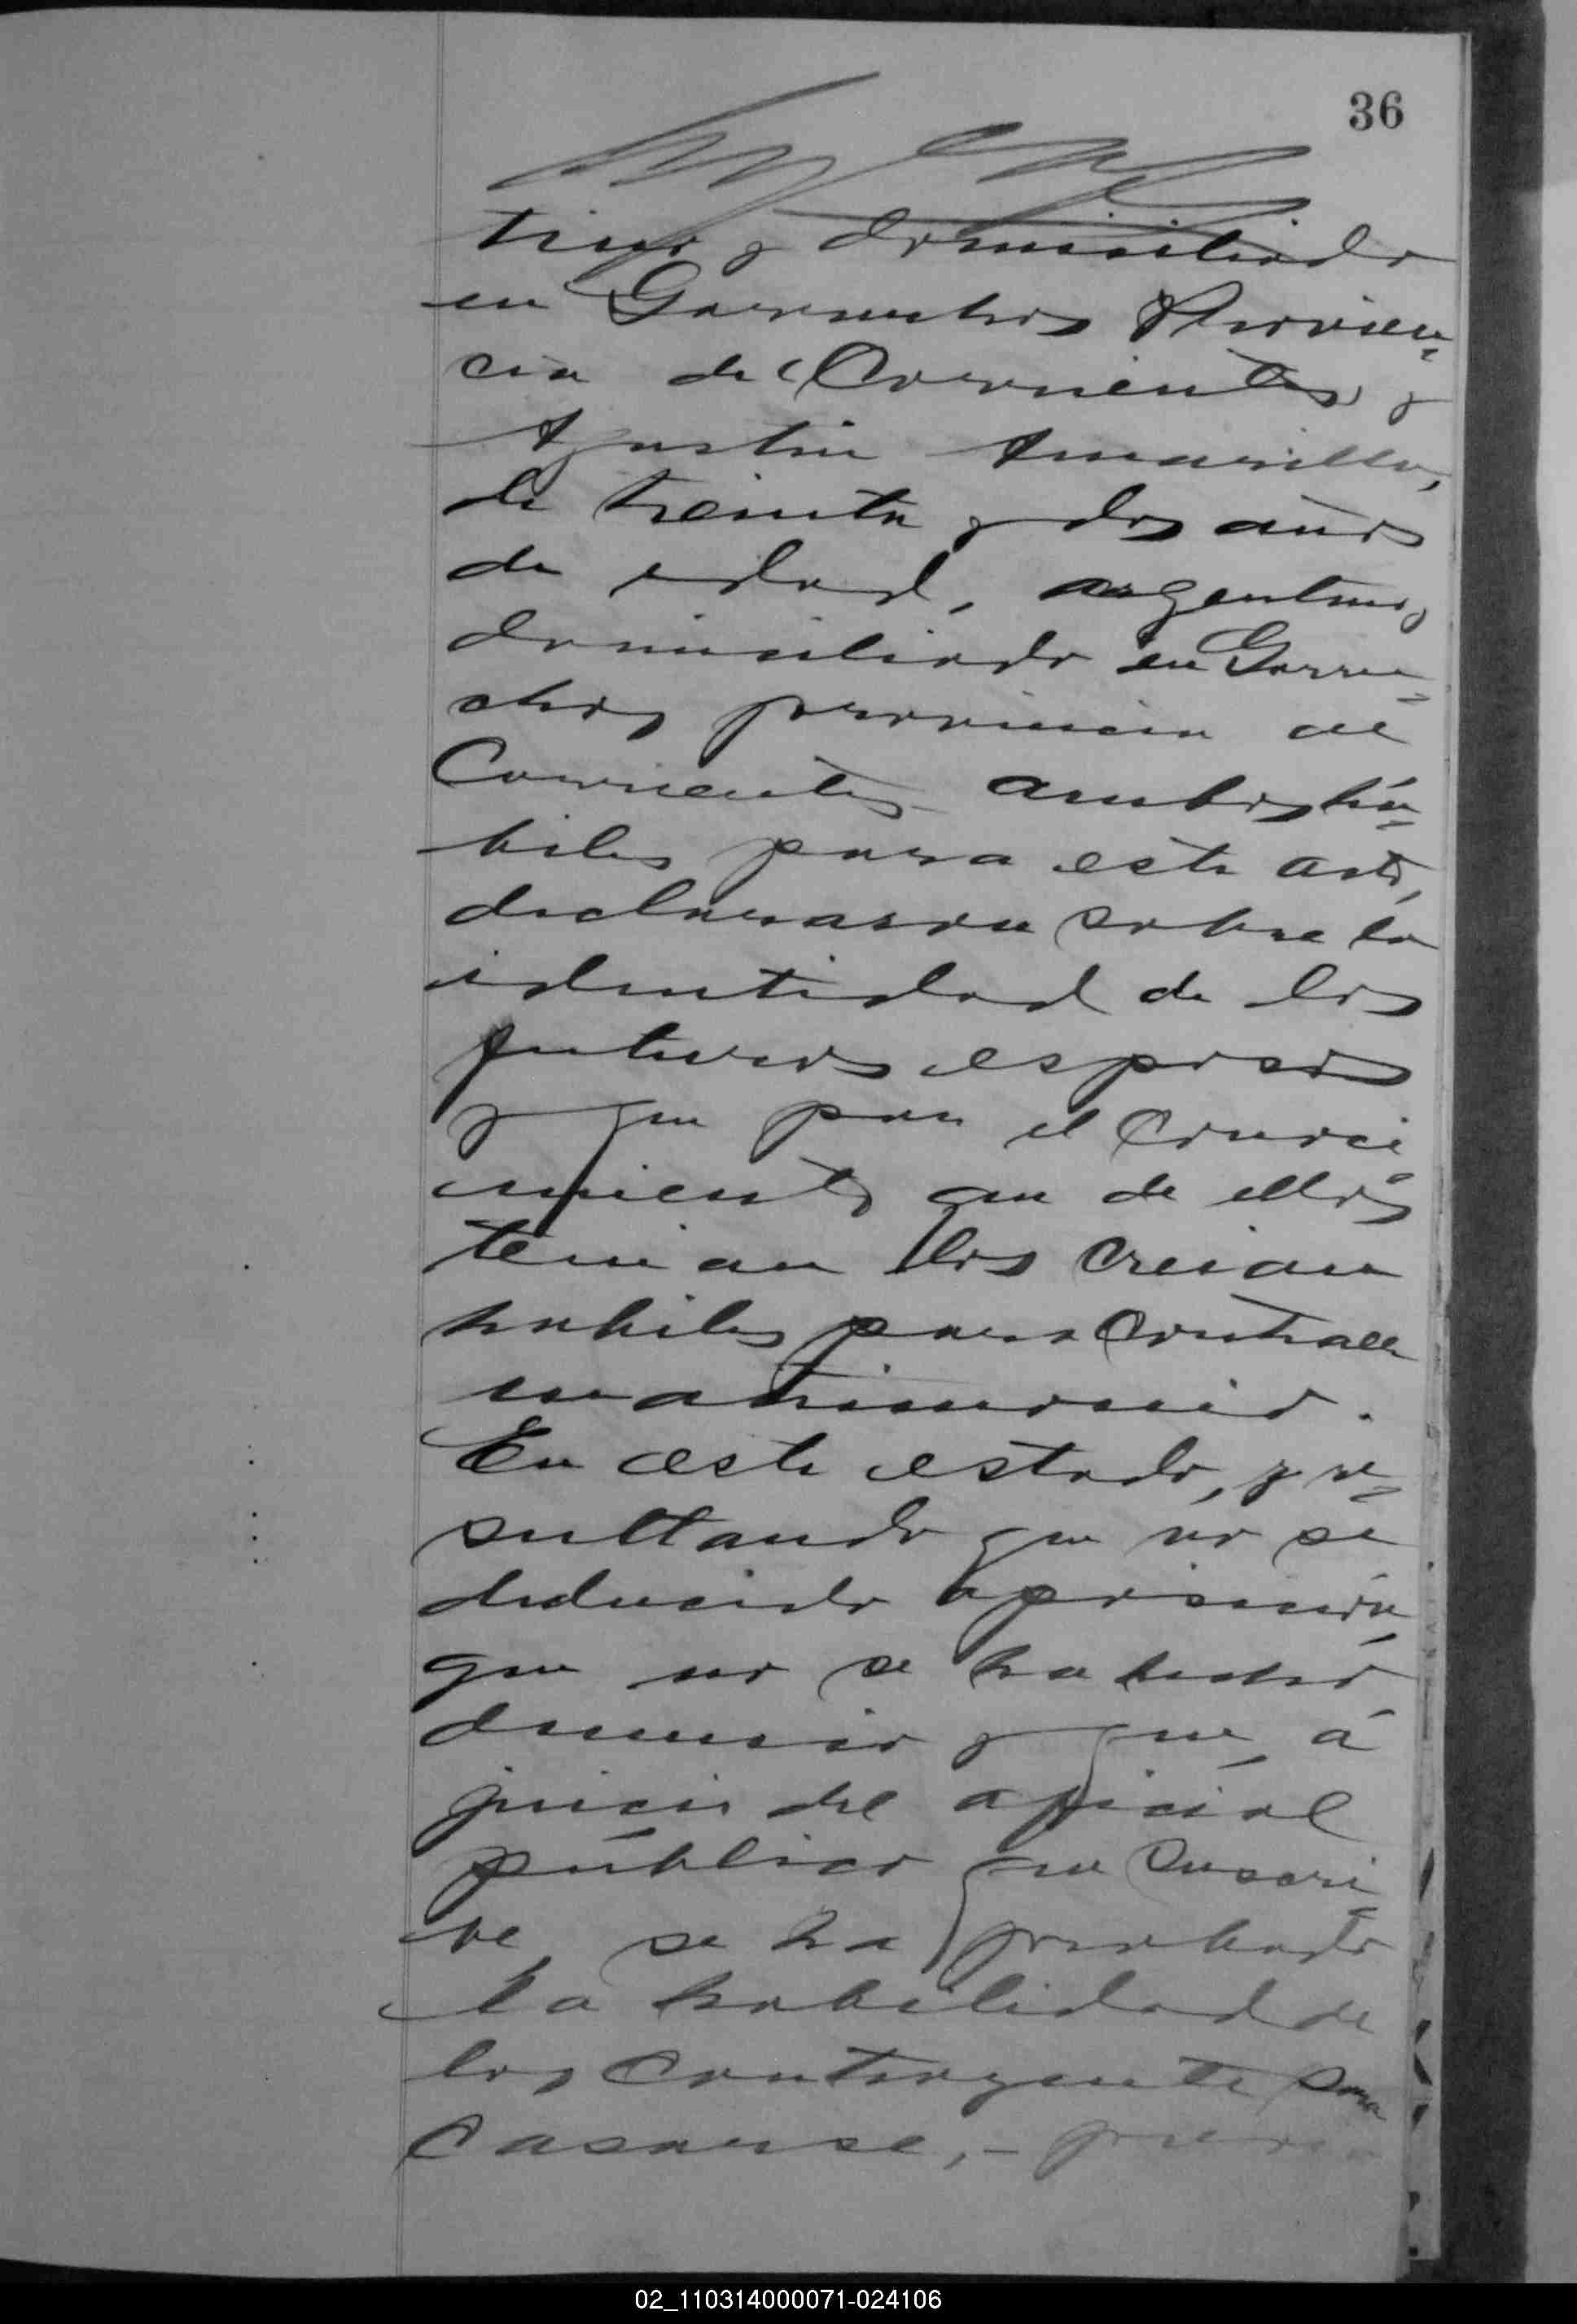 36
tino y domiciliado
en Garruchos Provin=
cia de Corrientes y
Agustin Amarilla,
de treinta y dos años
de edad, argentino,
domiciliado en Garru=
chos provincia de
Corrientes ambos há=
biles para este acto,
declararon sobre la
identidad de los
futuros esposos
y que por el conoci=
miento que de ellos
tenian los creian
habiles para contraer
matrimonio.
En este estado, y re=
sultando que no se
deducido oposición,
que no se ha hecho
denuncia y que, á
juicio del oficial
público que suscri=
be, se ha probado
la habilidad de
los contrayente para
casarse,-
02_110314000071-024106